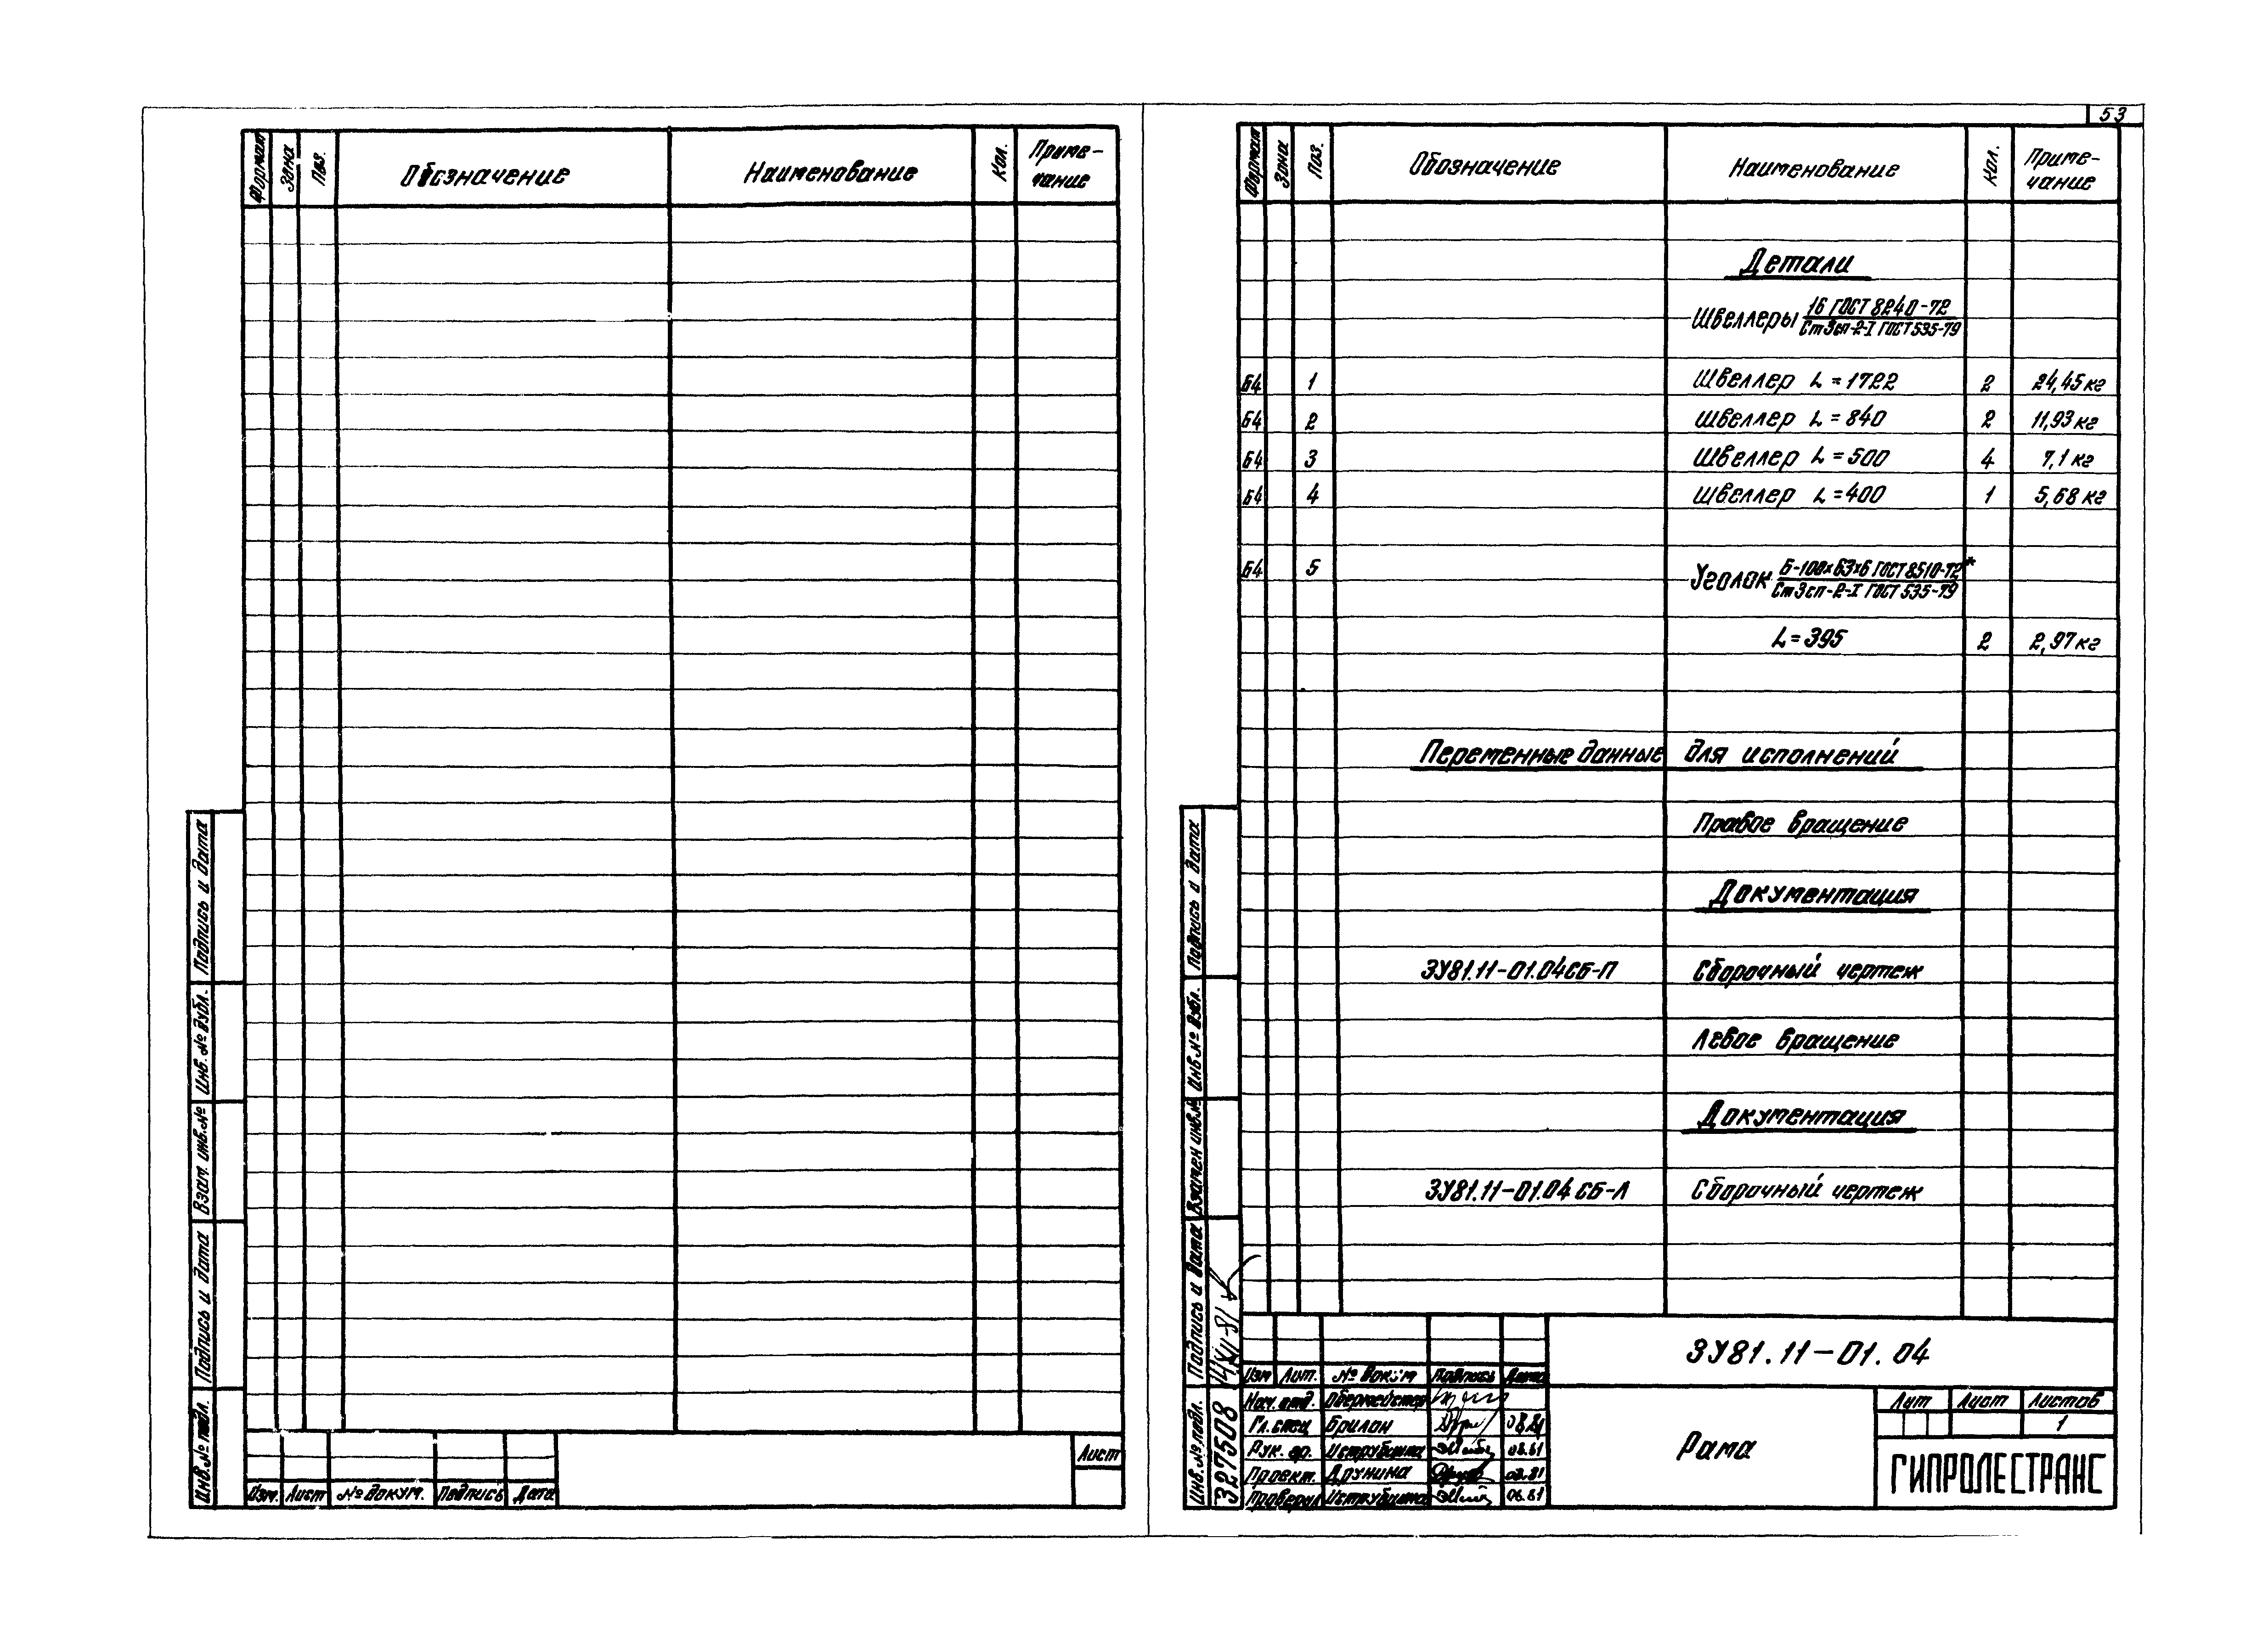 53
Формат Зона Поз. Обозначение Наименование Кол. Приме-
чание
Подпись и дата
Инв. № дубл.
Взам. инв. №
Подпись и дата
Инв. № подл.
Изм. Лист № докум. Подпись Дата
Лист
Формат Зона Поз. Обозначение Наименование Кол. Приме-
чание
Детали
Швеллеры 16 ГОСТ 8240-72
Ст3сп-2-I ГОСТ 535-79
Б4 1 Швеллер L=1722 2 24,45 кг
Б4 2 Швеллер L=840 2 11,93 кг
Б4 3 Швеллер L=500 4 7,1 кг
Б4 4 Швеллер L=400 1 5,68 кг
Б4 5 Уголок Б-100х63х6 ГОСТ 8510-72*
Ст3сп-2-I ГОСТ 535-79
L=395 2 2,97 кг
Переменные данные для исполнений
Правое вращение
Документация
ЗУ81.11-01.04СБ-П Сборочный чертеж
Левое вращение
Документация
ЗУ81.11-01.04 СБ-Л Сборочный чертеж
Подпись и дата
Инв № дубл.
Взамен инв.№
Подпись и дата
Инв. № подл.
327508
ЗУ81.11-01.04
Изм Лит. № докум Подпись Дата
Нач. отд.
Гл. спец Брилон 08.81
Рук. гр. Иструбцина 08.81
Проект. Друнина 08.81
Проверил Иструбцина 08.81
Рама
Лит Лист Листов
1
ГИПРОЛЕСТРАНС